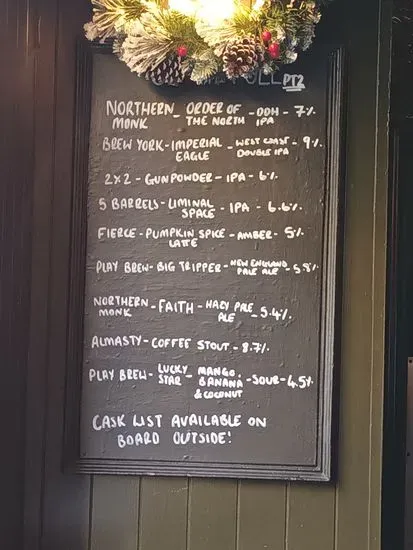 PT2
NORTHERN MONK - ORDER OF THE NORTH - DDH IPA - 7%
BREW YORK - IMPERIAL EAGLE - WEST COAST DOUBLE IPA - 9%
2x2 - GUNPOWDER - IPA - 6%
5 BARRELS - LIMINAL SPACE - IPA - 6.6%
FIERCE - PUMPKIN SPICE LATTE - AMBER - 5%
PLAY BREW - BIG TRIPPER - NEW ENGLAND PALE ALE - 5.8%
NORTHERN MONK - FAITH - HAZY PALE ALE - 5.4%
ALMASTY - COFFEE STOUT - 8.7%
PLAY BREW - LUCKY STAR - MANGO, BANANA & COCONUT - SOUR - 4.5%
CASK LIST AVAILABLE ON
BOARD OUTSIDE!